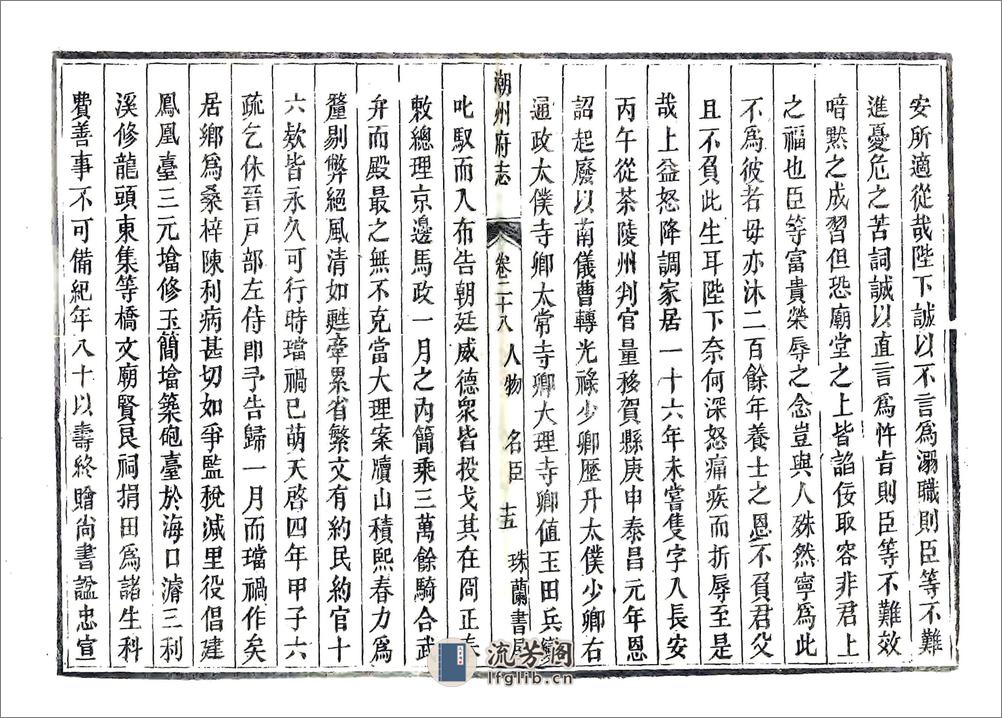 安所適從哉陛下誠以不言爲溺職則臣等不難
進憂危之苦詞誠以直言爲忤旨則臣等不難效
喑默之成習但恐廟堂之上皆諂佞取容非君上
之福也臣等富貴榮辱之念豈與人殊然寧爲此
不爲彼者毋亦沐二百餘年養士之恩不負君父
且不負此生耳陛下奈何深怒痛疾而折辱至是
哉上益怒降調家居一十六年未嘗隻字入長安
丙午從茶陵州判官量移賀縣庚申泰昌元年恩
詔起廢以南儀曹轉光祿少卿歷升太僕少卿右
通政太僕寺卿太常寺卿大理寺卿值玉田兵
潮州府志 卷二十八 人物 名臣 十五 珠蘭書
叱馭而入布告朝廷威德衆皆投戈其在冏正
敕總理京邊馬政一月之內簡乘三萬餘騎合武
弁而殿最之無不克當大理案牘山積熙春力爲
釐剔弊絕風清如甦牽累省繁文有約民約官十
六欵皆永久可行時璫禍已萌天啓四年甲子六
疏乞休晉戸部左侍即予告歸一月而璫禍作矣
居鄉爲桑梓陳利病甚切如爭監稅減里役倡建
鳳凰臺三元塔修玉簡塔築砲臺於海口濬三利
溪修龍頭東集等橋文廟賢良祠捐田爲諸生科
費善事不可備紀年八十以壽終贈尚書諡忠宣
流芳閣
lfglib.cn